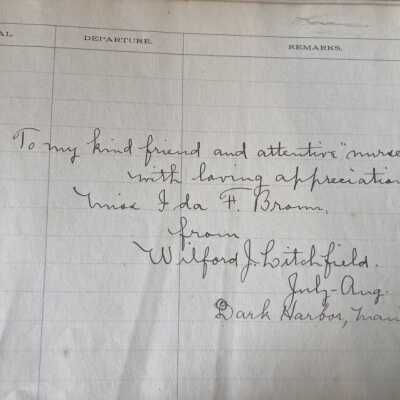 AL DEPARTURE. REMARKS.
To my kind friend and attentive "nurse
with loving appreciation
Miss Ida F. Brown,
from
Wilford J. Litchfield.
July-Aug.
Dark Harbor, Main